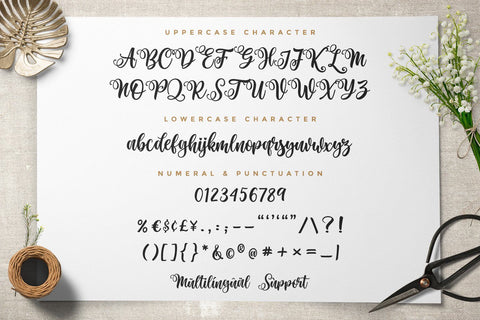 UPPERCASE CHARACTER
ABCDEFGHIJKLM
NOPQRSTUVWXYZ
LOWERCASE CHARACTER
abcdefghijkmlnopqrstuvwxyz
NUMERAL & PUNCTUATION
0123456789
%€$¢£¥.,:;--“‘’‘“”/\?!
()[]{}*&©®@#+×=_|
Multilingual Support